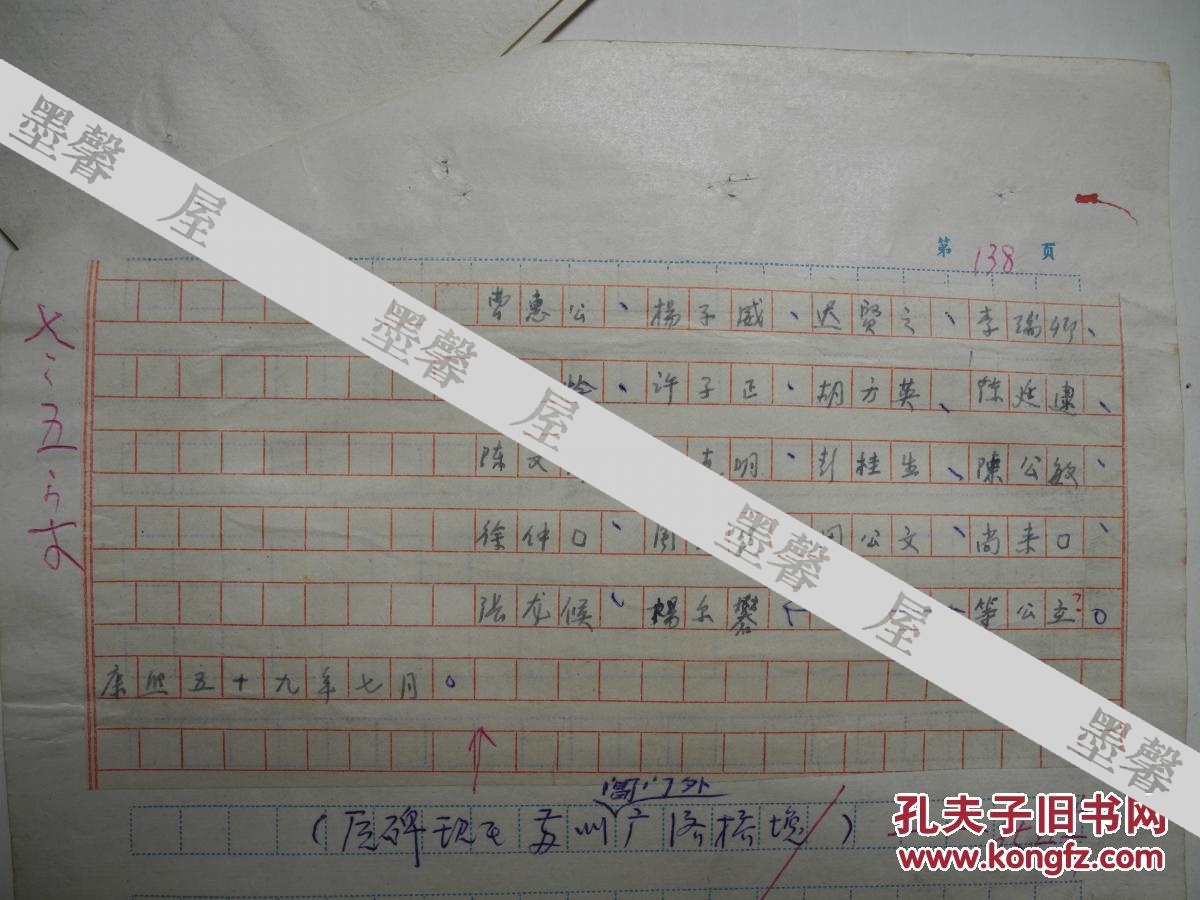 第138页
曹惠公、楊子威、迟賢之、李瑞卿、
许子正、胡方英、陈廷逮、
陈文 克明、彭桂生、陳公敏、
徐仲口、周 公文、尚来口、
張龙候、楊尔礬 等公立?。
康熙五十九年七月。
阊门外
(原碑现在苏州广济桥堍)
墨馨屋
墨馨屋
墨馨屋
墨馨
孔夫子旧书网
www.kongfz.com